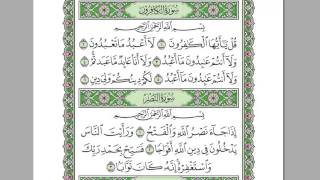 سورة الكافرون
بسم الله الرحمن الرحيم
قل يا أيها الكافرون ۝ لا أعبد ما تعبدون ۝
ولا أنتم عابدون ما أعبد ۝ ولا أنا عابد ما عبدتم
ولا أنتم عابدون ما أعبد ۝ لكم دينكم ولي دين ۝
سورة النصر
بسم الله الرحمن الرحيم
إذا جاء نصر الله والفتح ۝ ورأيت الناس
يدخلون في دين الله أفواجا ۝ فسبح بحمد ربك
واستغفره إنه كان توابا ۝